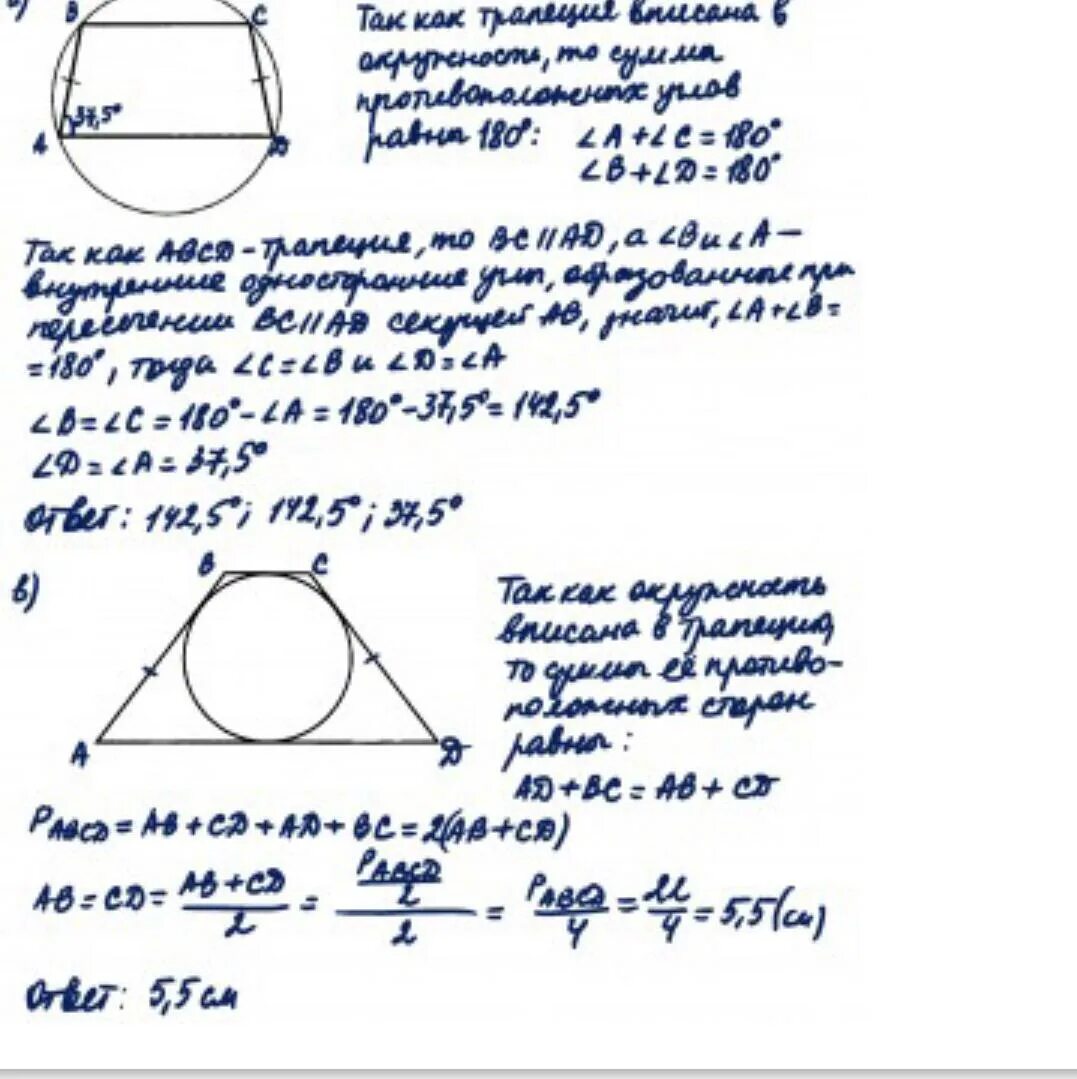 B C
37,5°
A D
Так как трапеция вписана в
окружность, то сумма
противоположных углов
равны 180°: ∠A+∠C=180°
∠B+∠D=180°
Так как ABCD-трапеция, то BC∥AD, а ∠B и ∠A —
внутренние односторонние угл, образованные при
пересечении BC∥AD секущей AB, значит, ∠A+∠B=
=180°, тогда ∠C=∠B и ∠D=∠A
∠B=∠C=180°-∠A=180°-37,5°=142,5°
∠D=∠A=37,5°
Ответ: 142,5°; 142,5°; 37,5°
в)
B C
A D
Так как окружность
вписана в трапецию,
то суммы её противо-
положных сторон
равны:
AD+BC=AB+CD
P ABCD = AB+CD+AD+BC=2(AB+CD)
AB=CD= (AB+CD)/2 = (P ABCD/2)/2 = P ABCD/4 = 22/4 = 5,5 (см)
Ответ: 5,5 см